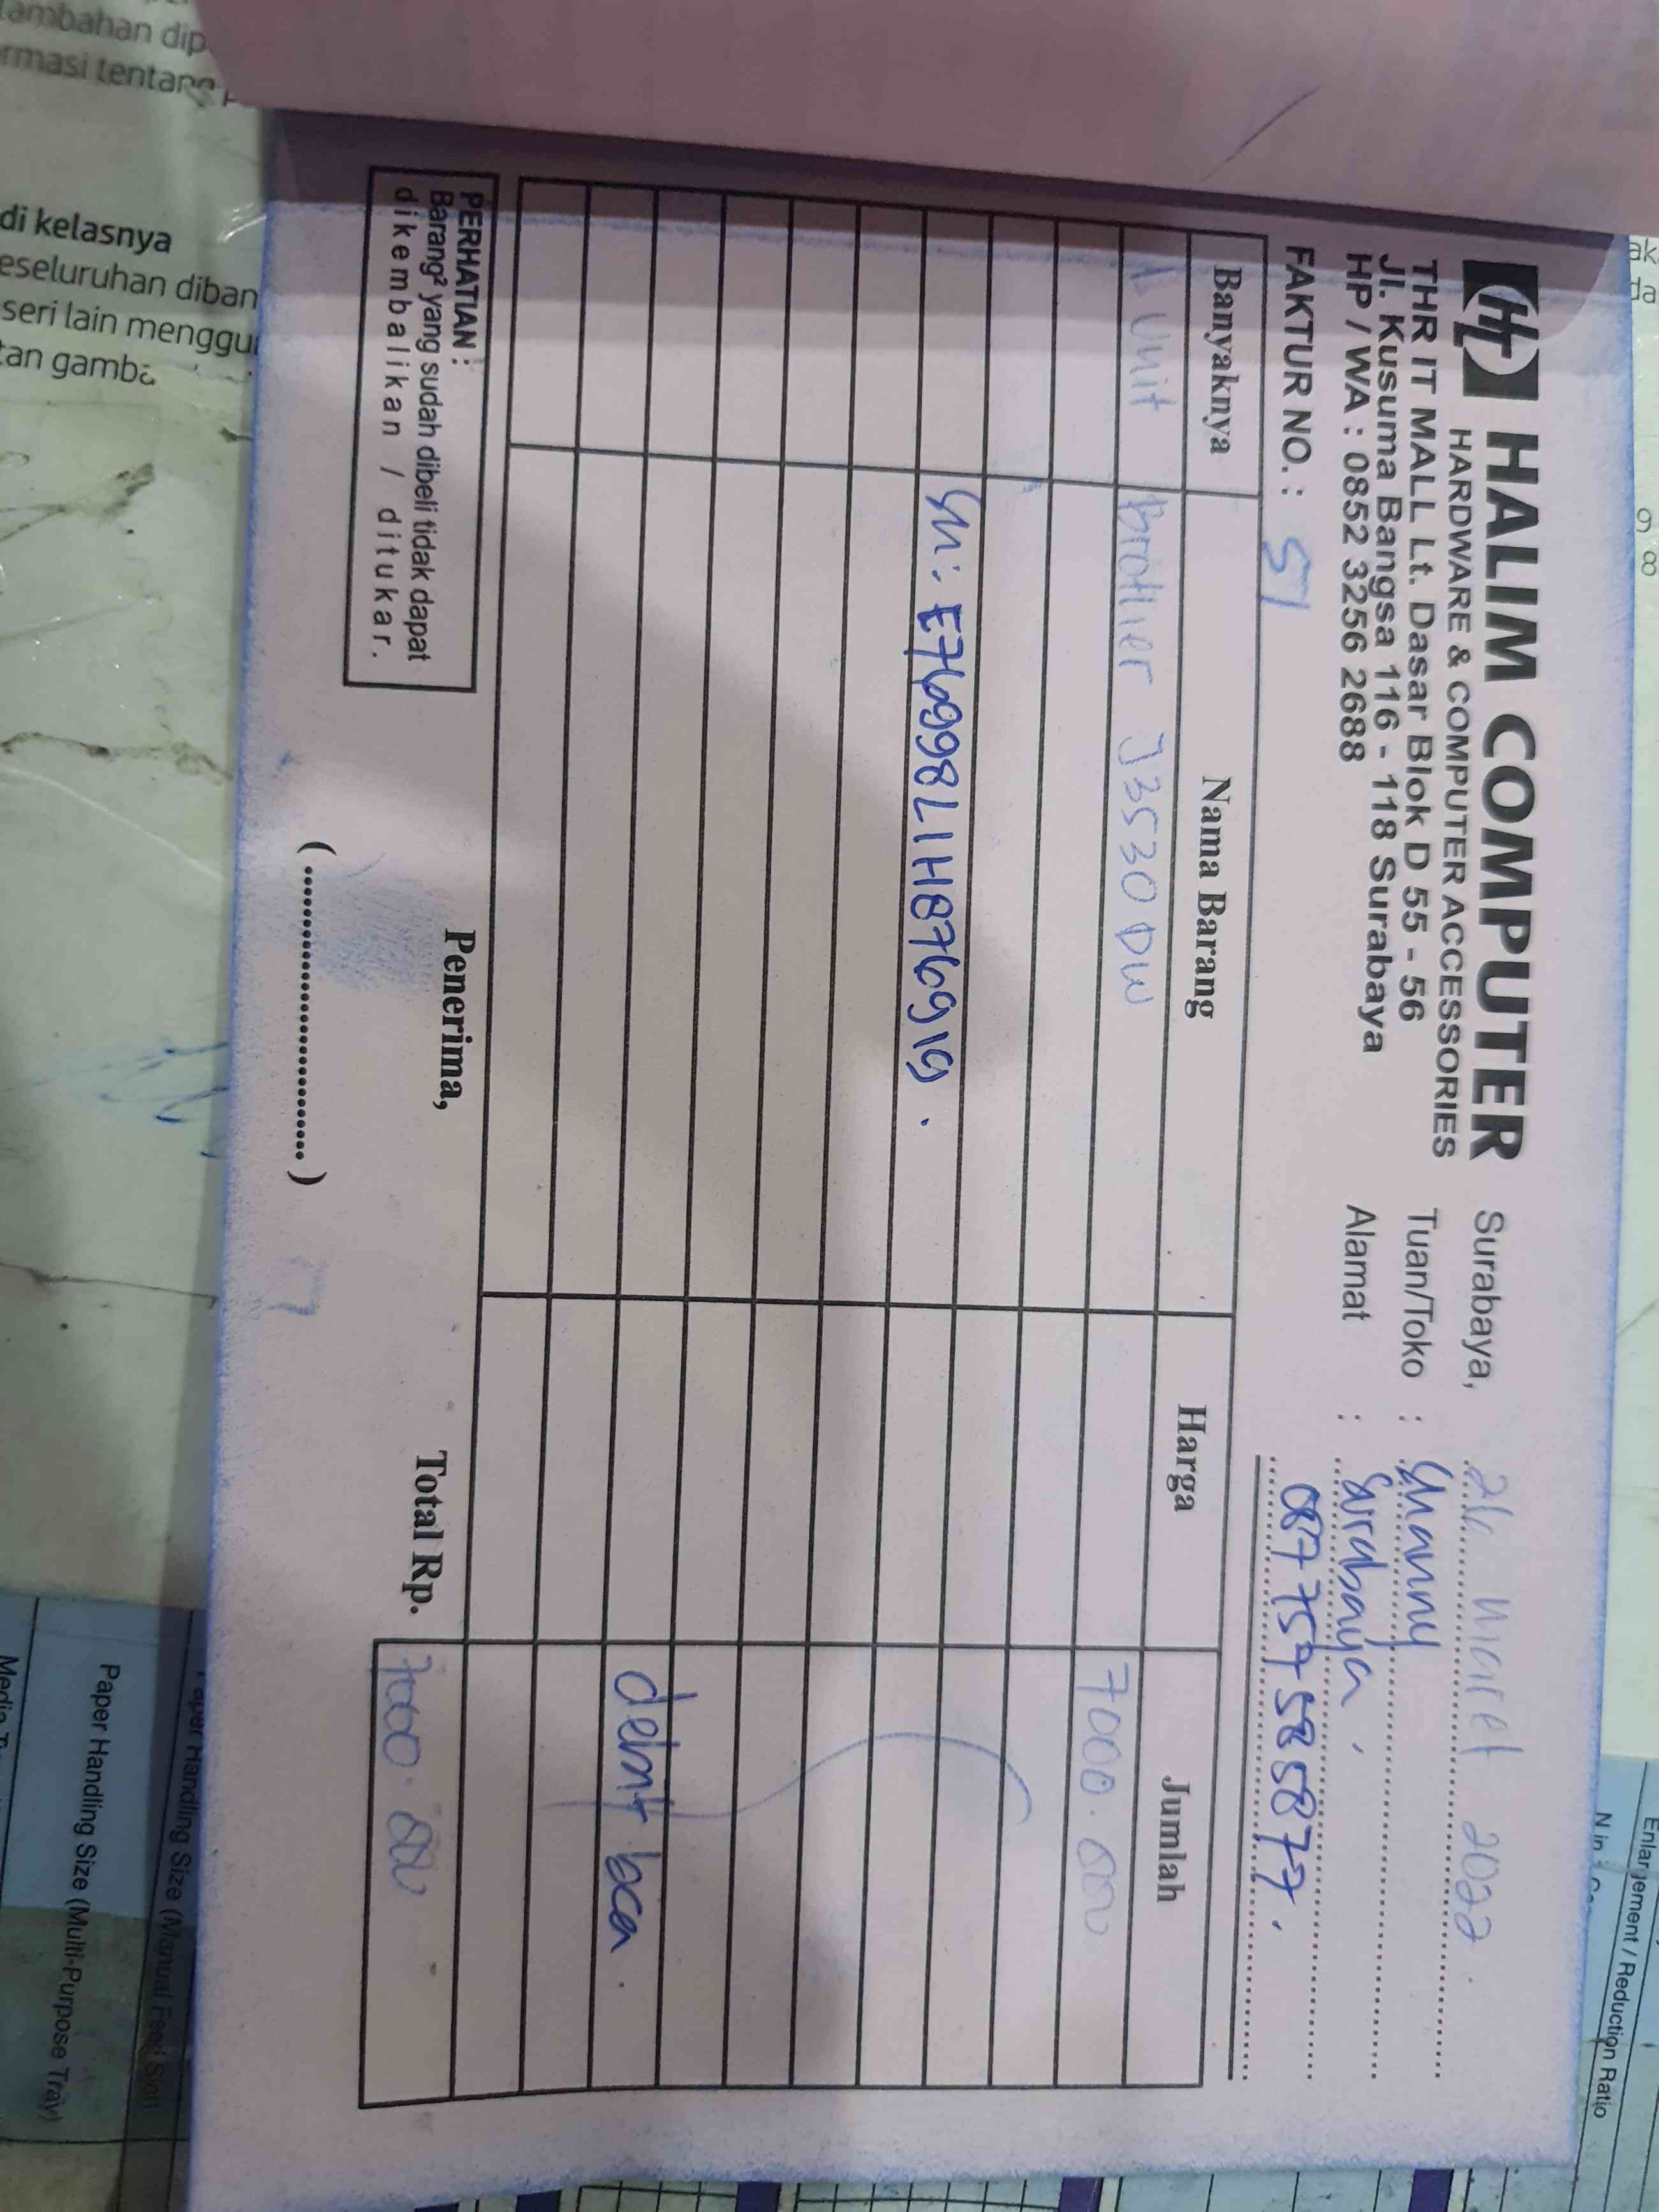 HALIM COMPUTER
HARDWARE & COMPUTER ACCESSORIES
THR IT MALL Lt. Dasar Blok D 55 - 56
Jl. Kusuma Bangsa 116 - 118 Surabaya
HP / WA : 0852 3256 2688
FAKTUR NO. : 51
Surabaya, 26 Maret 2022.
Tuan/Toko :
Alamat : Surabaya.
087759585877.
Banyaknya Nama Barang Harga Jumlah
1 Unit Brother J3530 DW 7000.000
SN: E76998L1H876919.
debit bca.
PERHATIAN :
Barang² yang sudah dibeli tidak dapat
dikembalikan / ditukar.
Penerima,
(........................)
Total Rp. 7000.000
ambahan dip
rmasi tentang
di kelasnya
eseluruhan diban
seri lain menggu
tan gamba
Enlargement / Reduction Ratio
N in 1
Paper Handling Size (Manual Feed Slot)
Paper Handling Size (Multi-Purpose Tray)